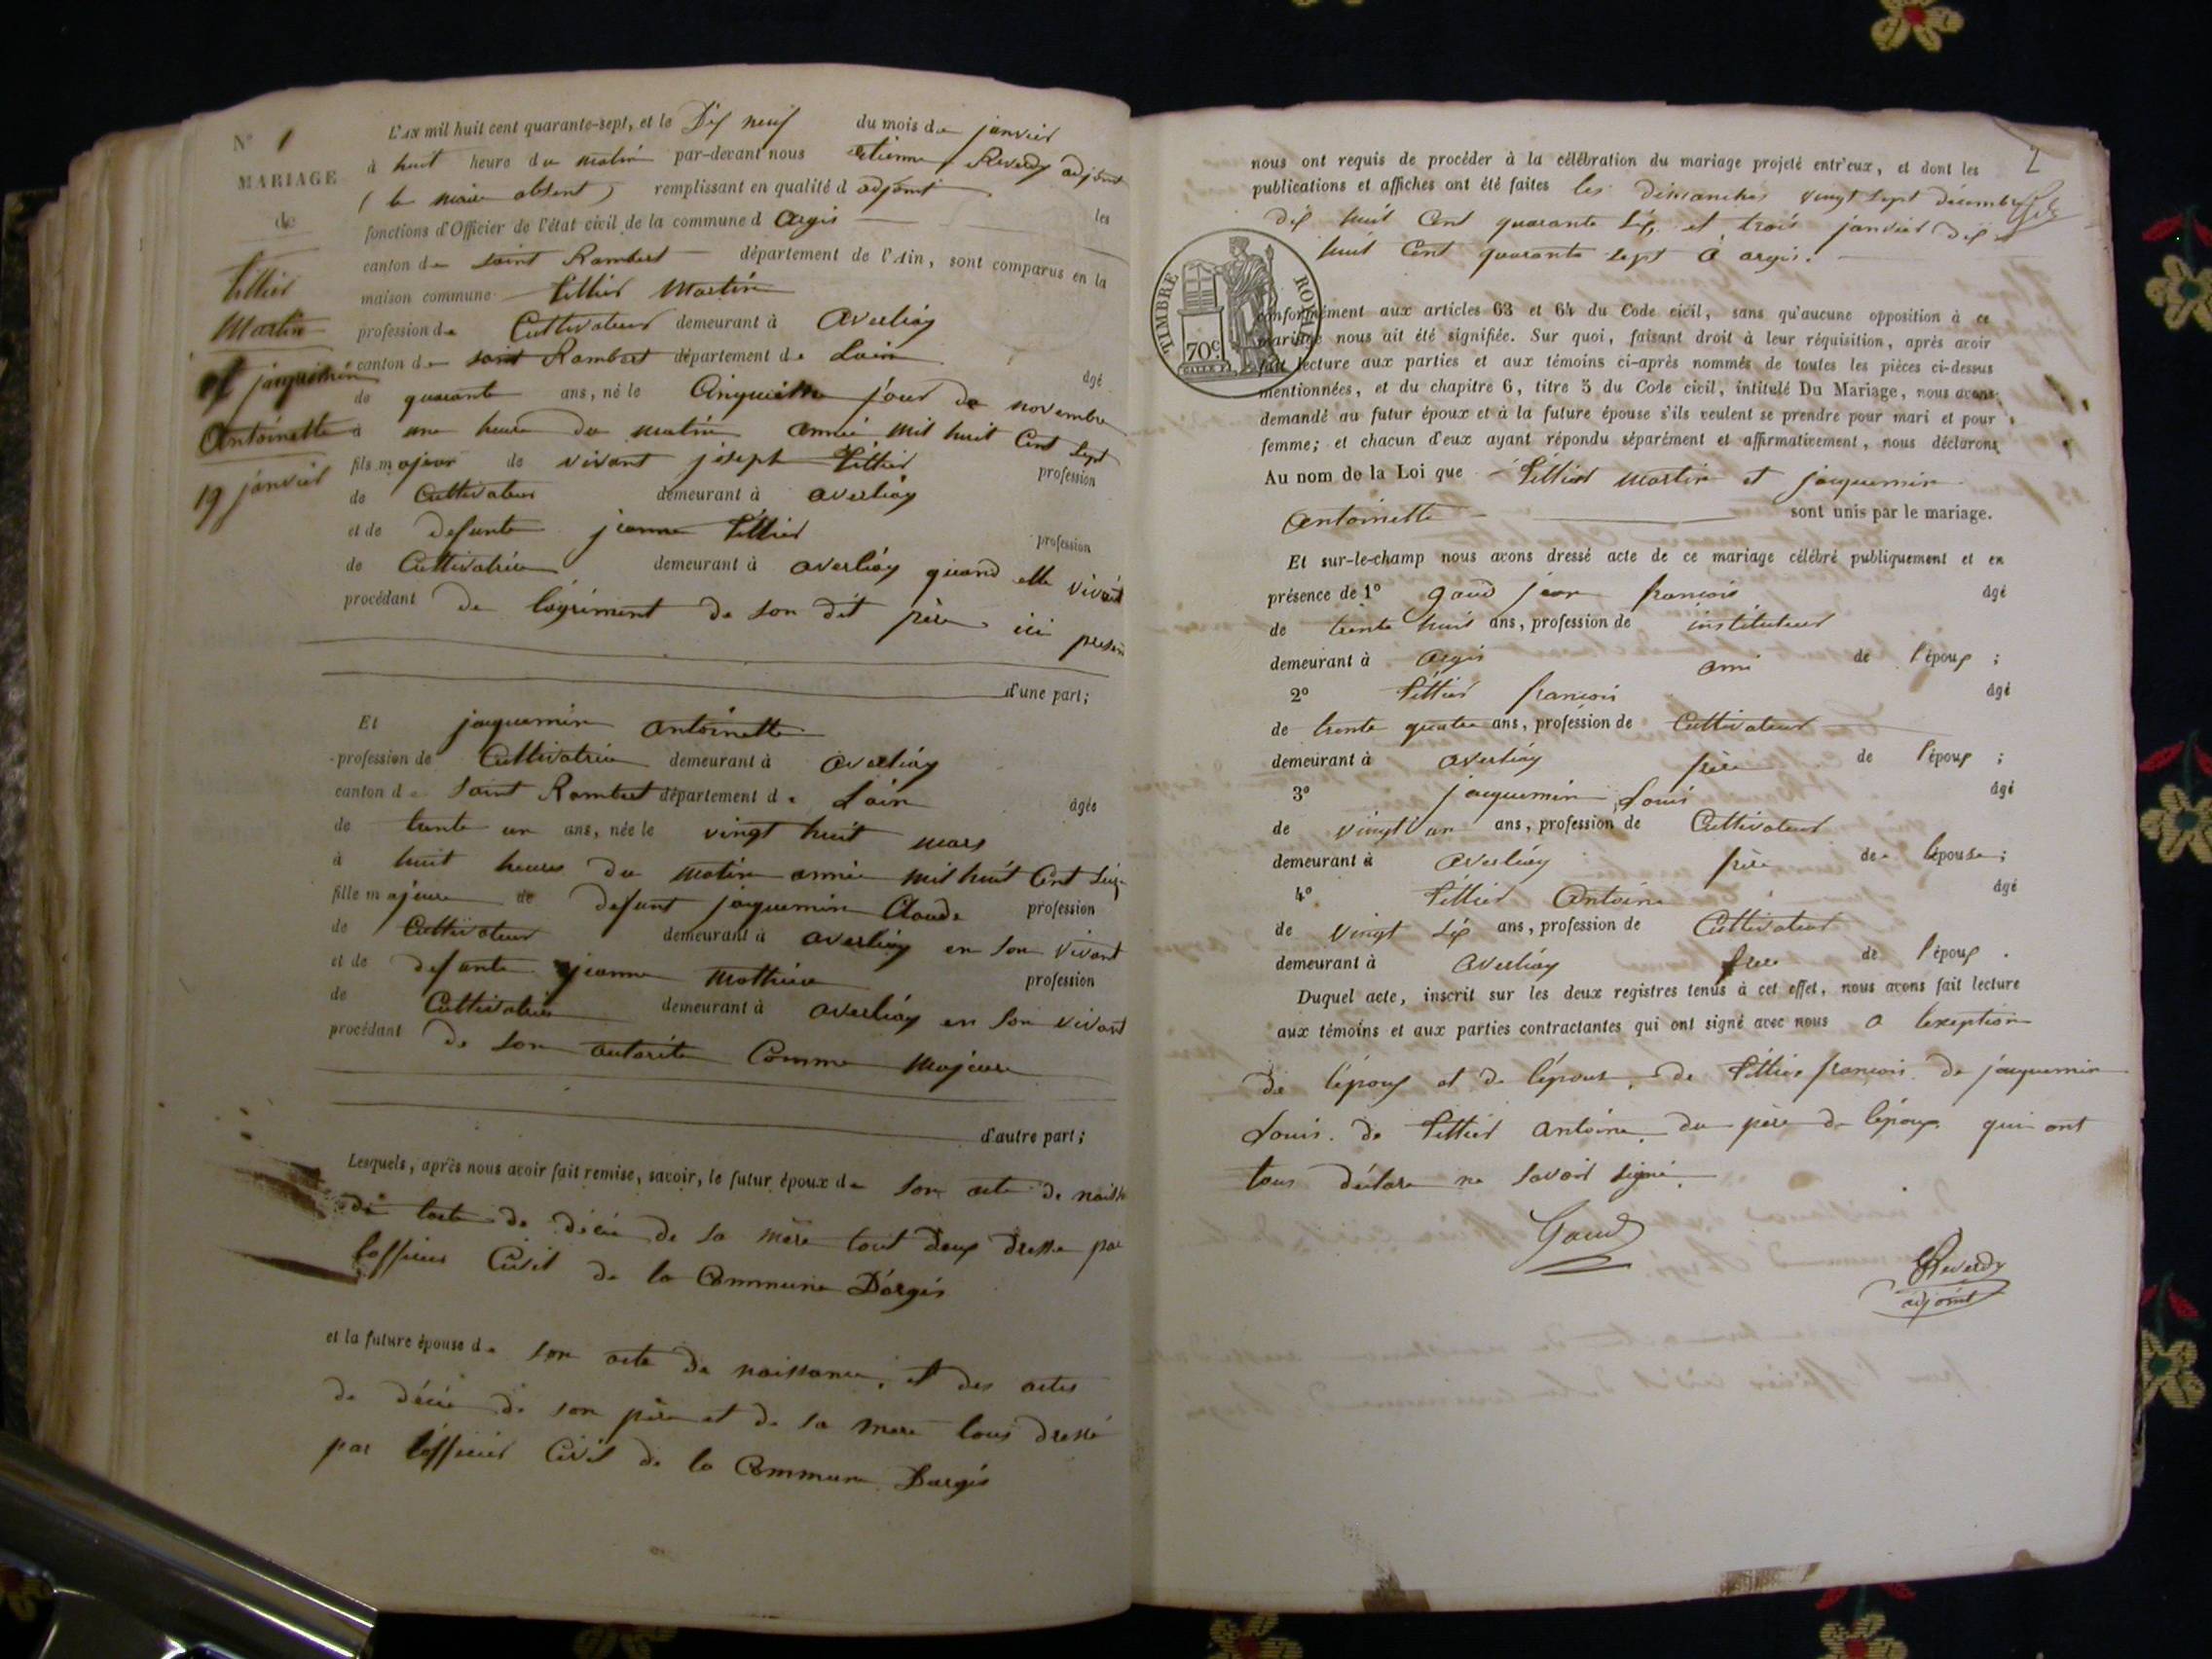 N° 1
MARIAGE
de
Tillier
Martin
et jaquemin
Antoinette
19 janvier
L'AN mil huit cent quarante-sept, et le Dix neuf du mois de janvier
à huit heure du matin par-devant nous etienne Reverdy adjoint
( le maire absent ) remplissant en qualité d adjoint les
fonctions d'Officier de l'état civil de la commune d argis
canton de saint Rambert département de l'Ain, sont comparus en la
maison commune Tillier Martin
profession de Cultivateur demeurant à averliaz
canton de saint Rambert département de Lain âgé
de quarante ans, né le Cinquième jour de novembre
à une heure du matin année mil huit Cent Sept
fils majeur de vivant joseph Tillier profession
de Cultivateur demeurant à averliaz
et de defunte jeanne Tillier profession
de Cultivatrice demeurant à averliaz quand elle vivait
procédant de lagriment de son dit père ici presen
d'une part;
Et jaquemin antoinette
profession de Cultivatrice demeurant à averliaz
canton de Saint Rambert département de Lain âgée
de trente un ans, née le vingt huit mars
à huit heures du matin année mil huit Cent Seize
fille majeure de defunt jaquemin Claude profession
de Cultivateur demeurant à averliaz en son vivant
et de defunte jeanne Mathieu profession
de Cultivatrice demeurant à averliaz en son vivant
procédant de son autorite Comme Majeure
d'autre part;
Lesquels, après nous avoir fait remise, savoir, le futur époux de son acte de naiss
de lacte de décé de sa mère tout deux dresse par
lofficier Civil de la Commune D'argis
et la future épouse de son acte de naissance, et des actes
de décé de son père et de sa mere tous dressé
par lofficier Civil de la Commune Dargis
2
nous ont requis de procéder à la célébration du mariage projeté entr'eux, et dont les
publications et affiches ont été faites les dimanches vingt sept décembre
dix huit Cent quarante six, et trois janvier dix
huit Cent quarante sept à argis.
TIMBRE ROYAL
70c
conformément aux articles 63 et 64 du Code civil, sans qu'aucune opposition à ce
mariage nous ait été signifiée. Sur quoi, faisant droit à leur réquisition, après avoir
fait lecture aux parties et aux témoins ci-après nommés de toutes les pièces ci-dessus
mentionnées, et du chapitre 6, titre 5 du Code civil, intitulé Du Mariage, nous avons
demandé au futur époux et à la future épouse s'ils veulent se prendre pour mari et pour
femme; et chacun d'eux ayant répondu séparément et affirmativement, nous déclarons
Au nom de la Loi que Tillier Martin et jaquemin
antoinette sont unis par le mariage.
Et sur-le-champ nous avons dressé acte de ce mariage célébré publiquement et en
présence de 1° gaud jean francois âgé
de trente huit ans, profession de instituteur
demeurant à argis ami de l'époux ;
2° Tillier francois âgé
de trente quatre ans, profession de Cultivateur
demeurant à averliaz frère de l'époux ;
3° jaquemin Louis âgé
de vingt un ans, profession de Cultivateur
demeurant à averliaz frère de lépouse;
4° Tillier Antoine âgé
de vingt six ans, profession de Cultivateur
demeurant à averliaz frere de l'époux .
Duquel acte, inscrit sur les deux registres tenus à cet effet, nous avons fait lecture
aux témoins et aux parties contractantes qui ont signé avec nous a lexeption
de lépoux et de lépouse, de Tillier francois de jaquemin
Louis. de Tillier antoine, du père de lépoux qui ont
tous déclare ne savoir signé
Gaud
Reverdy
adjoint